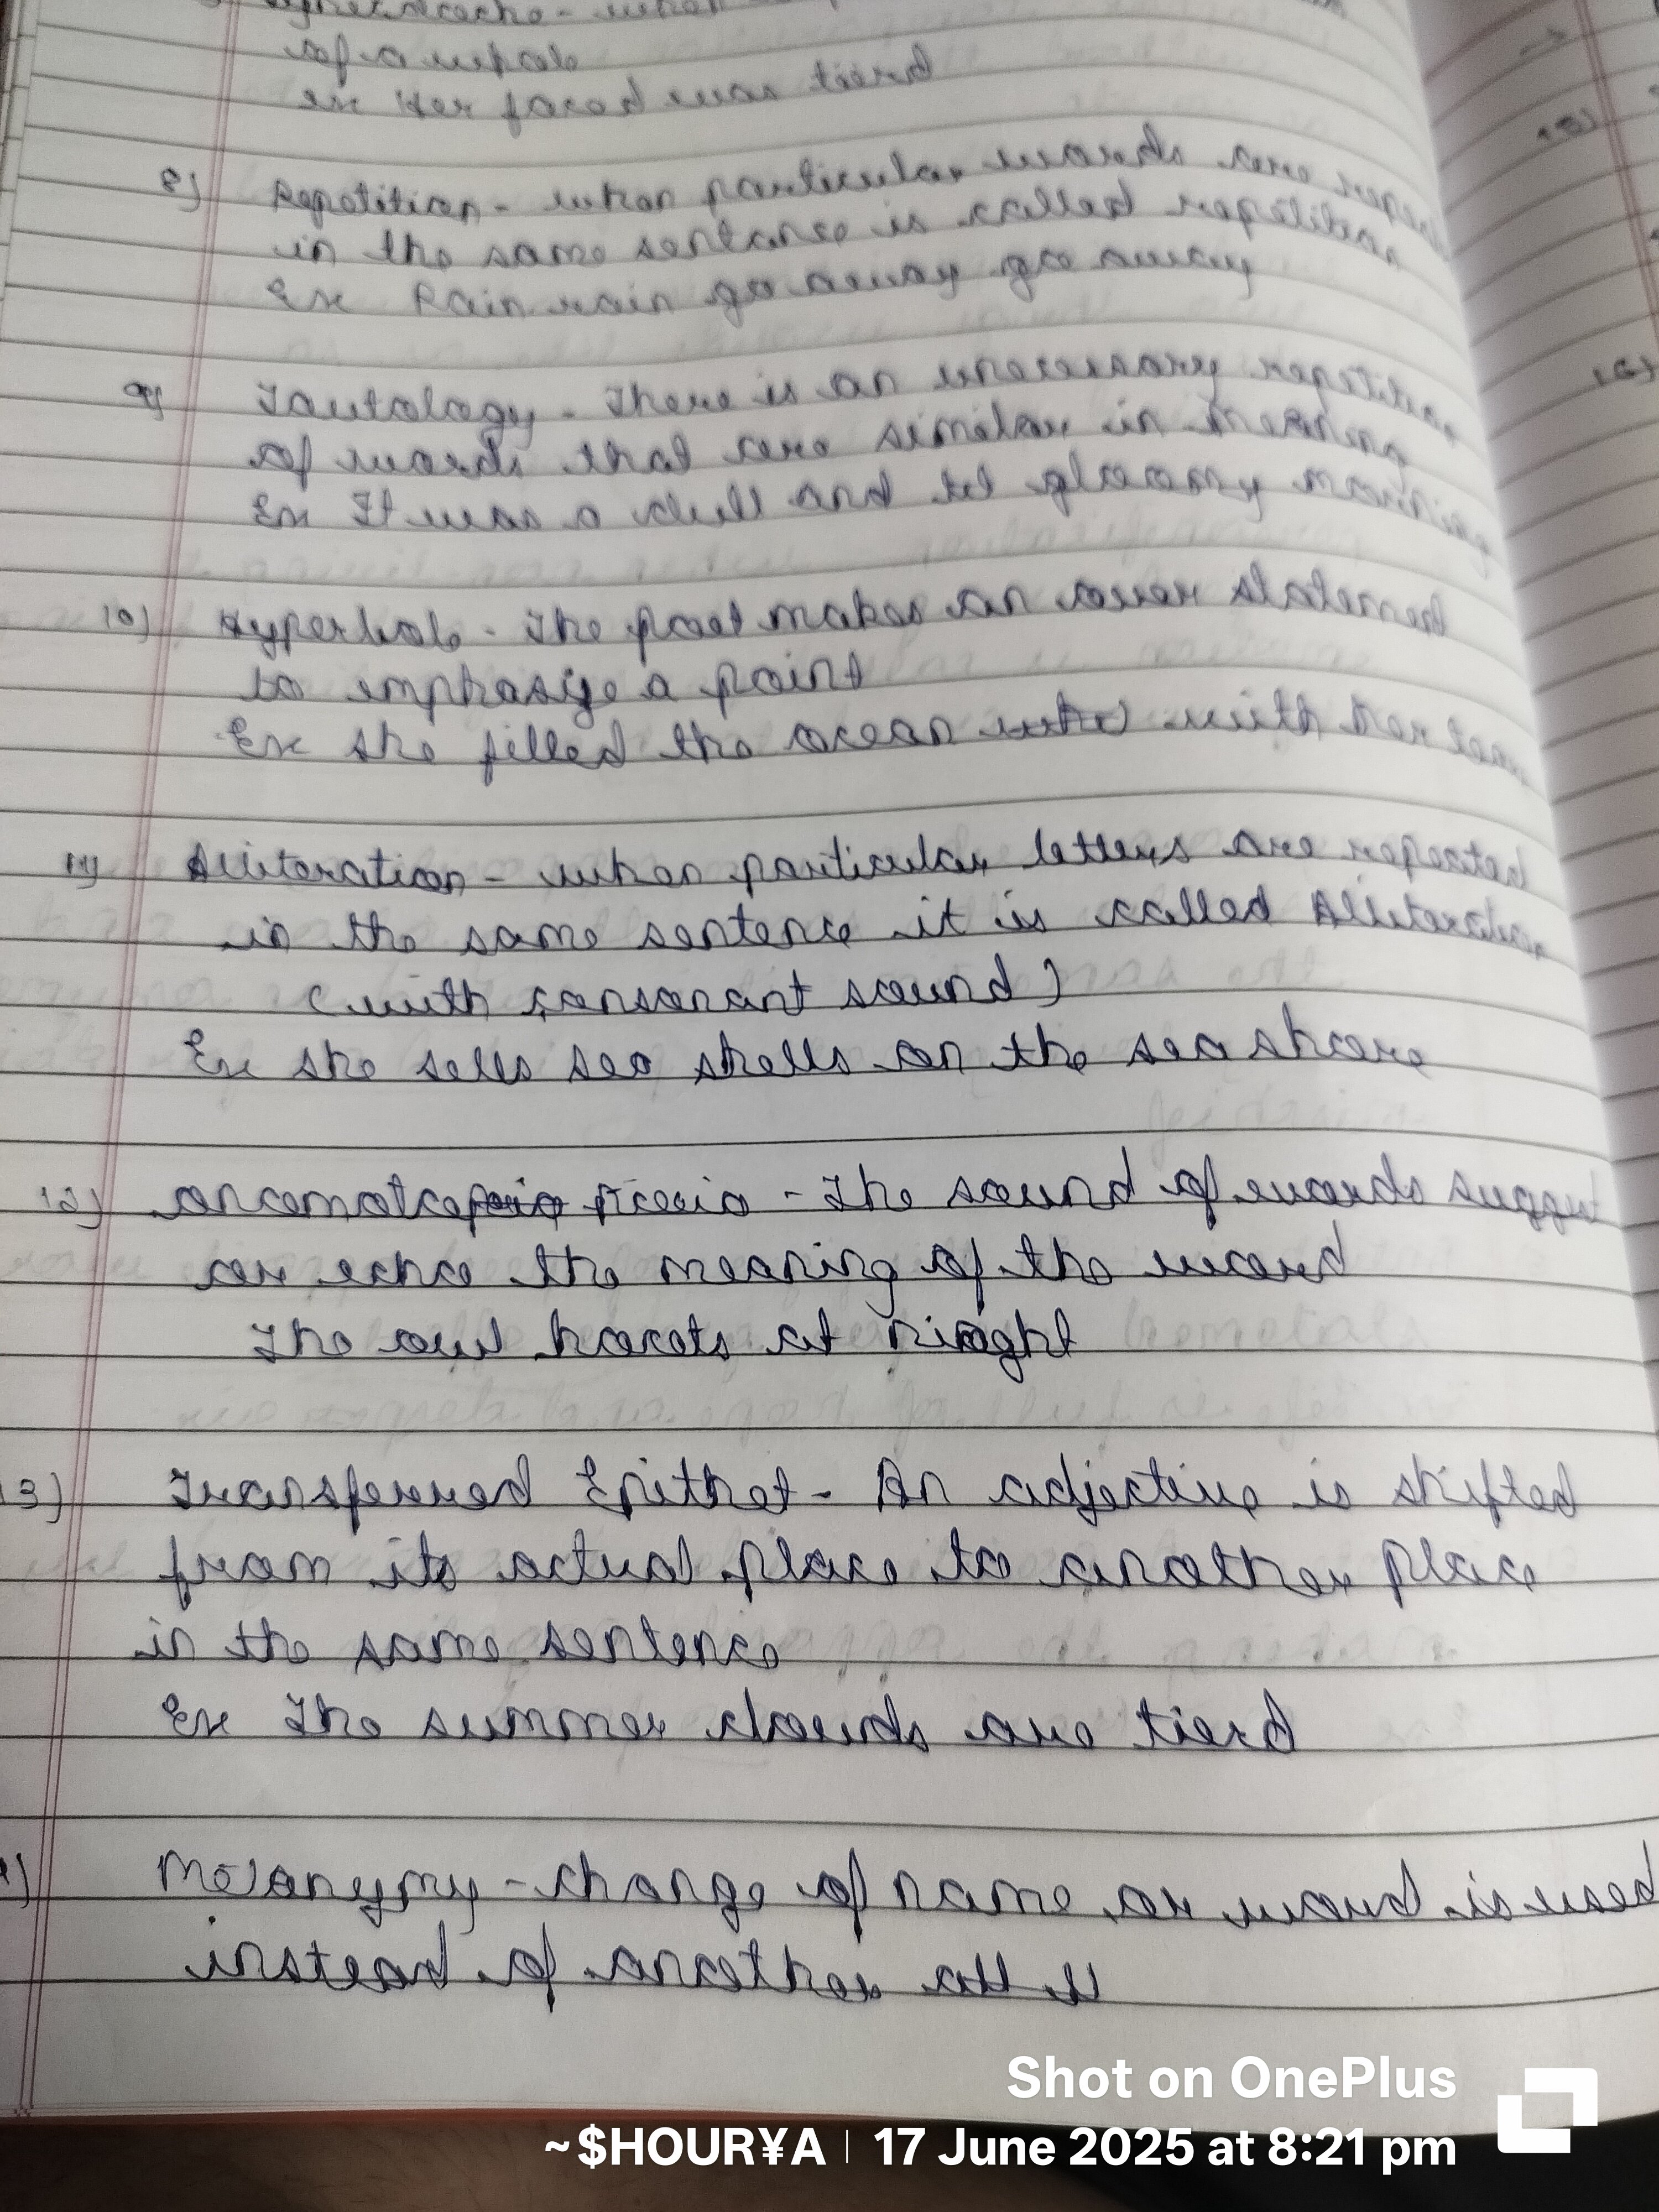 of a whole
ex Her faced was tierd
8) Repetition - when particular words are
in the same sentance is called repetition
Ex Rain rain go away go away
9) Tautology - There is an unecessary repetition
of words that are similar in meaning
Ex It was a dull and gloomy morning
10) Hyperbole - The poet makes an over statement
to emphasize a point
Ex she filled the ocean with her
11) Alliteration - when particular letters are repeated
in the same sentence it is called Alliteration
(with consonant sound)
Ex she sells sea shells on the sea shore
12) - The sound of words suggest
or echo the meaning of the word
The owl hoots at night
13) Transferred Epithet - An adjective is shifted
from its actual place to another place
in the same sentence
Ex The summer clouds are tierd
Metonymy - change of name or word is used
instead of another
Shot on OnePlus
~$HOUR¥A | 17 June 2025 at 8:21 pm